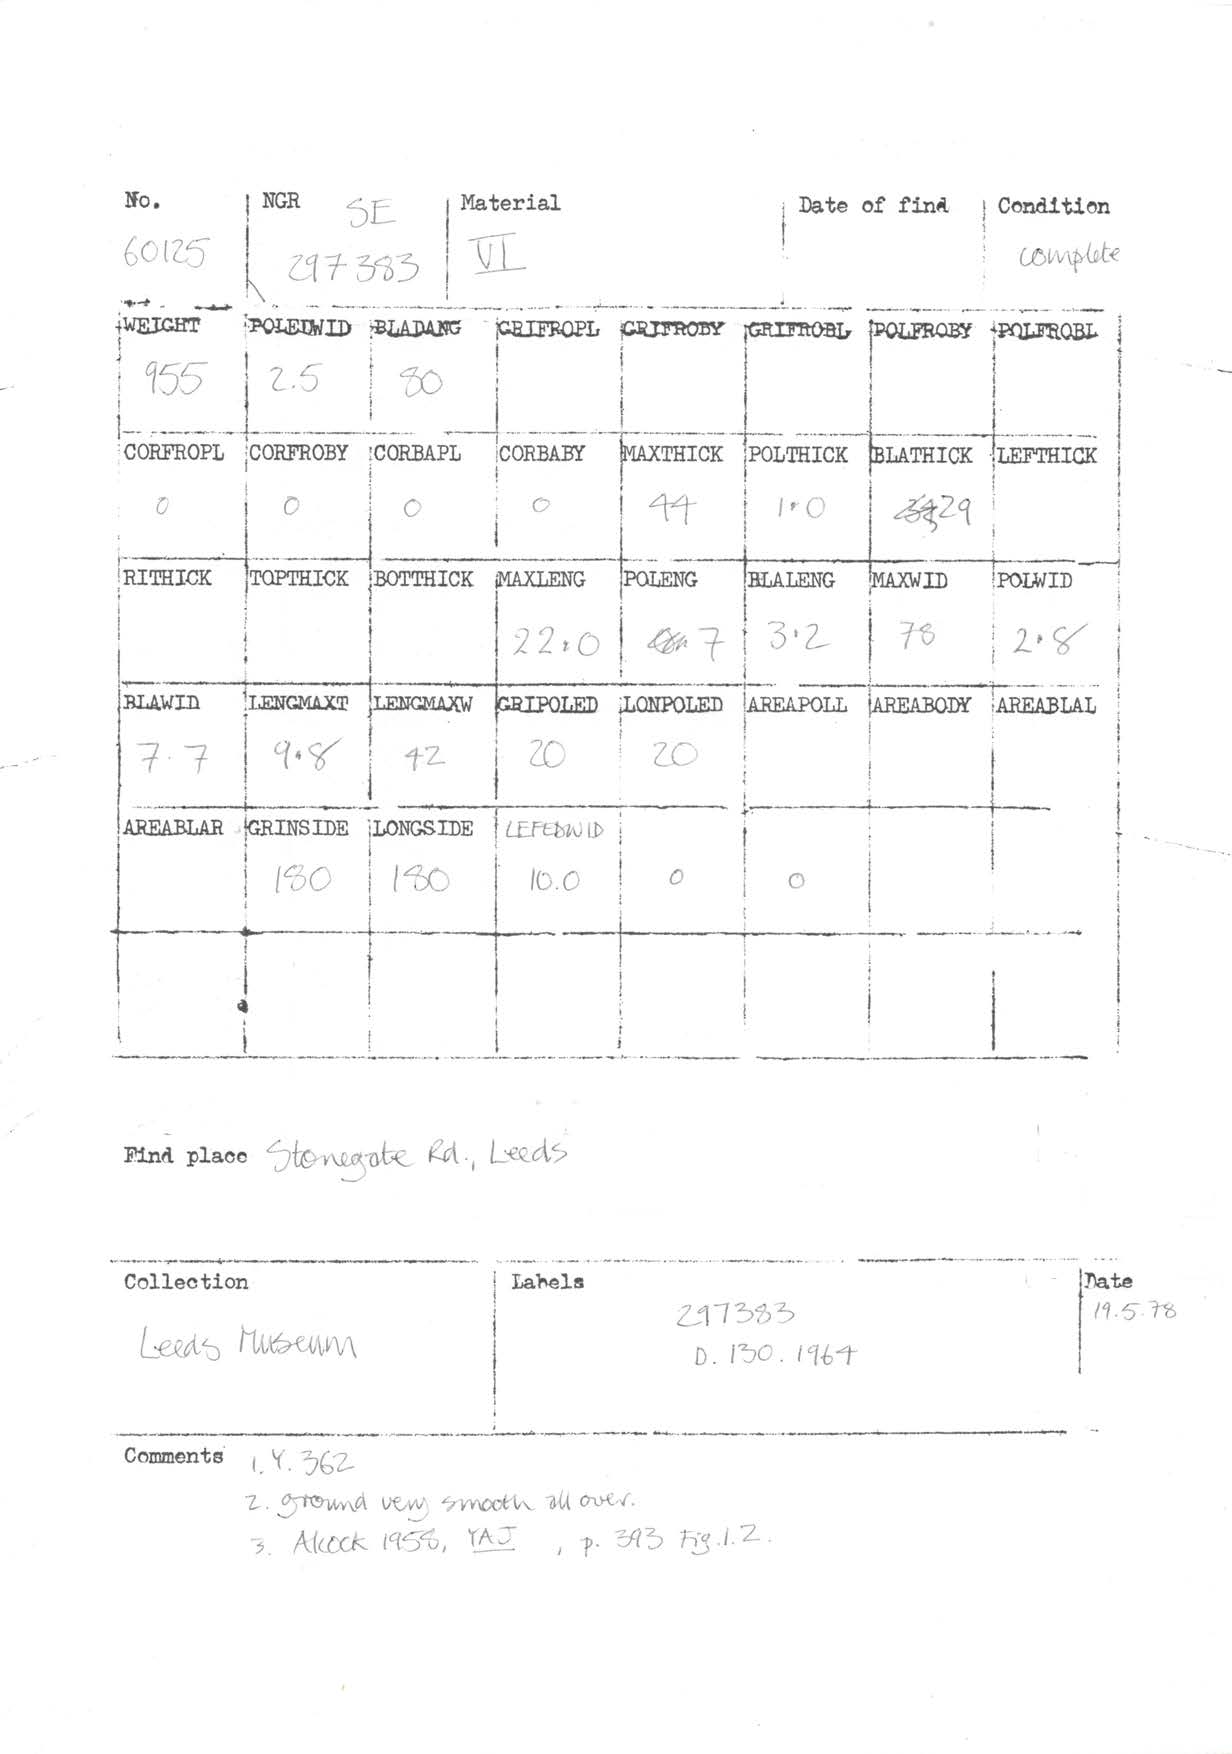 No. NGR SE Material Date of find Condition
60125 297383 VI complete
WEIGHT POLEDWID BLADANG GRIFROPL GRIFROBY GRIFROBL POLFROBY POLFROBL
955 2.5 80
CORFROPL CORFROBY CORBAPL CORBABY MAXTHICK POLTHICK BLATHICK LEFTHICK
0 0 0 0 44 1.0 29
RITHICK TOPTHICK BOTTHICK MAXLENG POLENG BLALENG MAXWID POLWID
22.0 7 3.2 78 2.8
BLAWID LENGMAXT LENGMAXW GRIPOLED LONPOLED AREAPOLL AREABODY AREABLAL
7.7 9.8 42 20 20
AREABLAR GRINSIDE LONGSIDE LEFEDWID
180 180 10.0 0 0
Find place Stonegate Rd., Leeds
Collection Labels Date
297383 19.5.78
Leeds Museum D. 130. 1964
Comments 1. Y. 362
2. ground very smooth all over.
3. Alcock 1958, YAJ , p. 393 Fig.1.2.